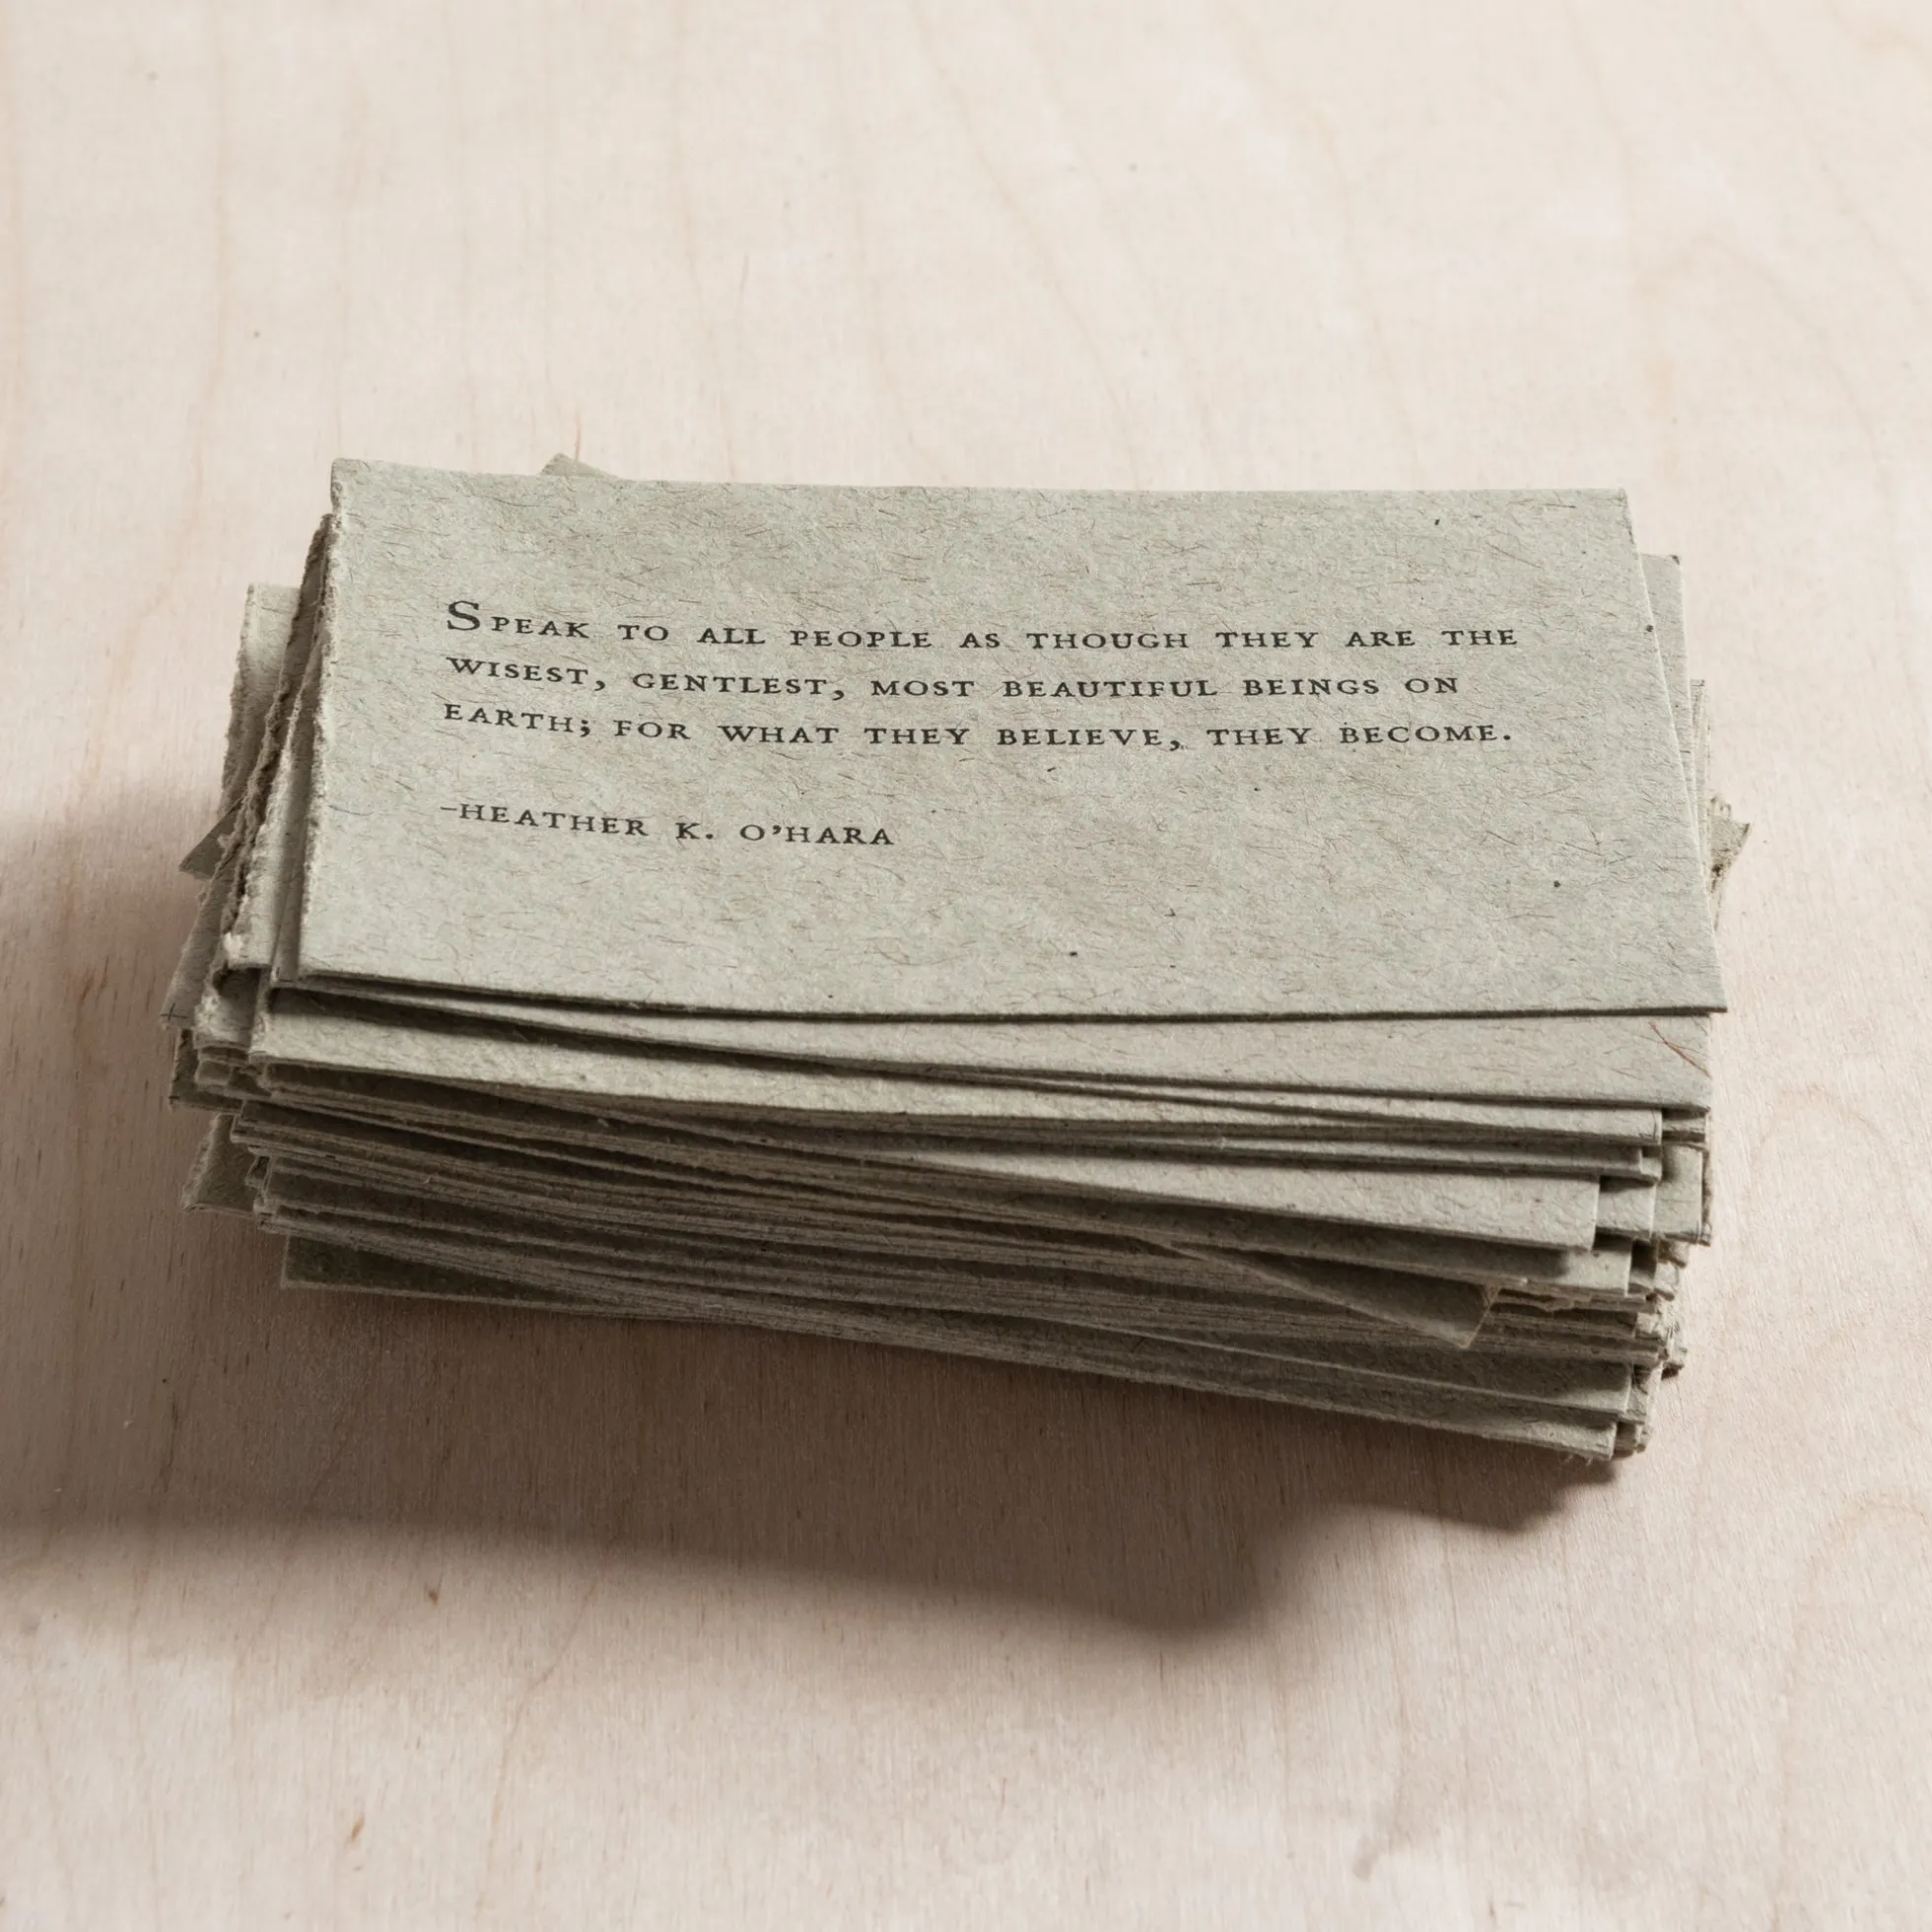 Speak to all people as though they are the
wisest, gentlest, most beautiful beings on
earth; for what they believe, they become.
–Heather K. O’Hara